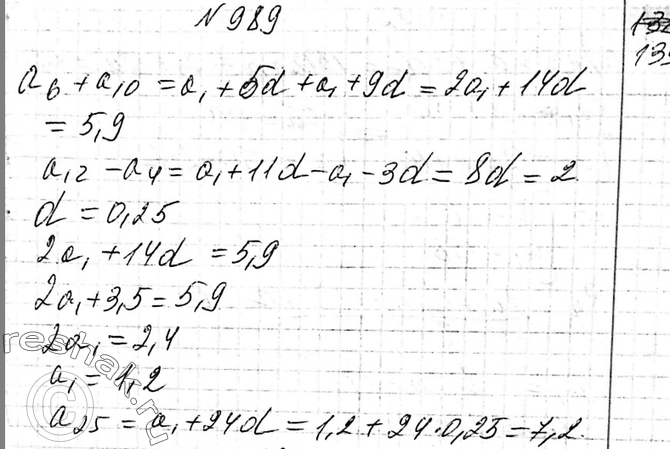 №989
a₆ + a₁₀ = a₁ + 5d + a₁ + 9d = 2a₁ + 14d
= 5,9
a₁₂ - a₄ = a₁ + 11d - a₁ - 3d = 8d = 2
d = 0,25
2a₁ + 14d = 5,9
2a₁ + 3,5 = 5,9
2a₁ = 2,4
a₁ = 1,2
a₂₅ = a₁ + 24d = 1,2 + 24·0,25 = 7,2.
reshak.ru